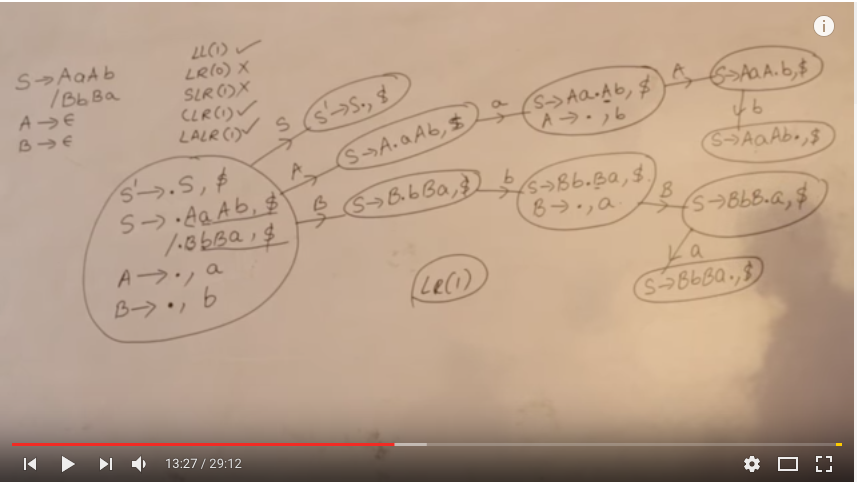 S→AaAb
/BbBa
A→ε
B→ε
LL(1) ✓
LR(0) X
SLR(1) X
CLR(1) ✓
LALR(1) ✓
S'→.S, $
S→.AaAb, $
/.BbBa, $
A→., a
B→., b
S
S'→S., $
A
S→A.aAb, $
a
S→Aa.Ab, $
A→., b
A
S→AaA.b, $
b
S→AaAb., $
B
S→B.bBa, $
b
S→Bb.Ba, $
B→., a
B
S→BbB.a, $
a
S→BbBa., $
LR(1)
13:27 / 29:12